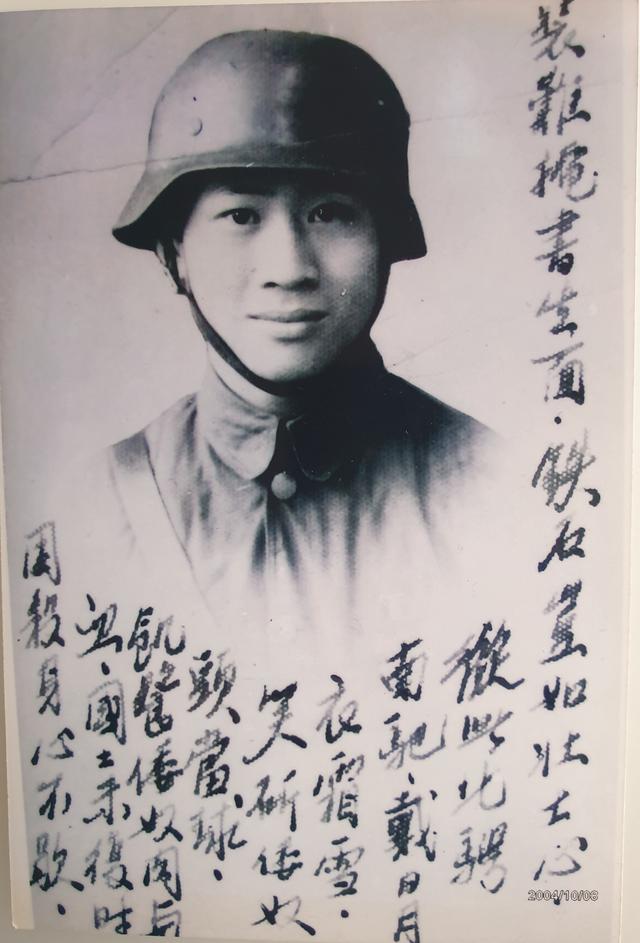 裝難掩書生面.鐵石豈如壯士心.
從此北騁
南馳、戴日月
衣霜雪.
笑斫倭奴
頭當球.
飢餐倭奴肉與
血、國土未復時
困殺身心不歇.
2004/10/08